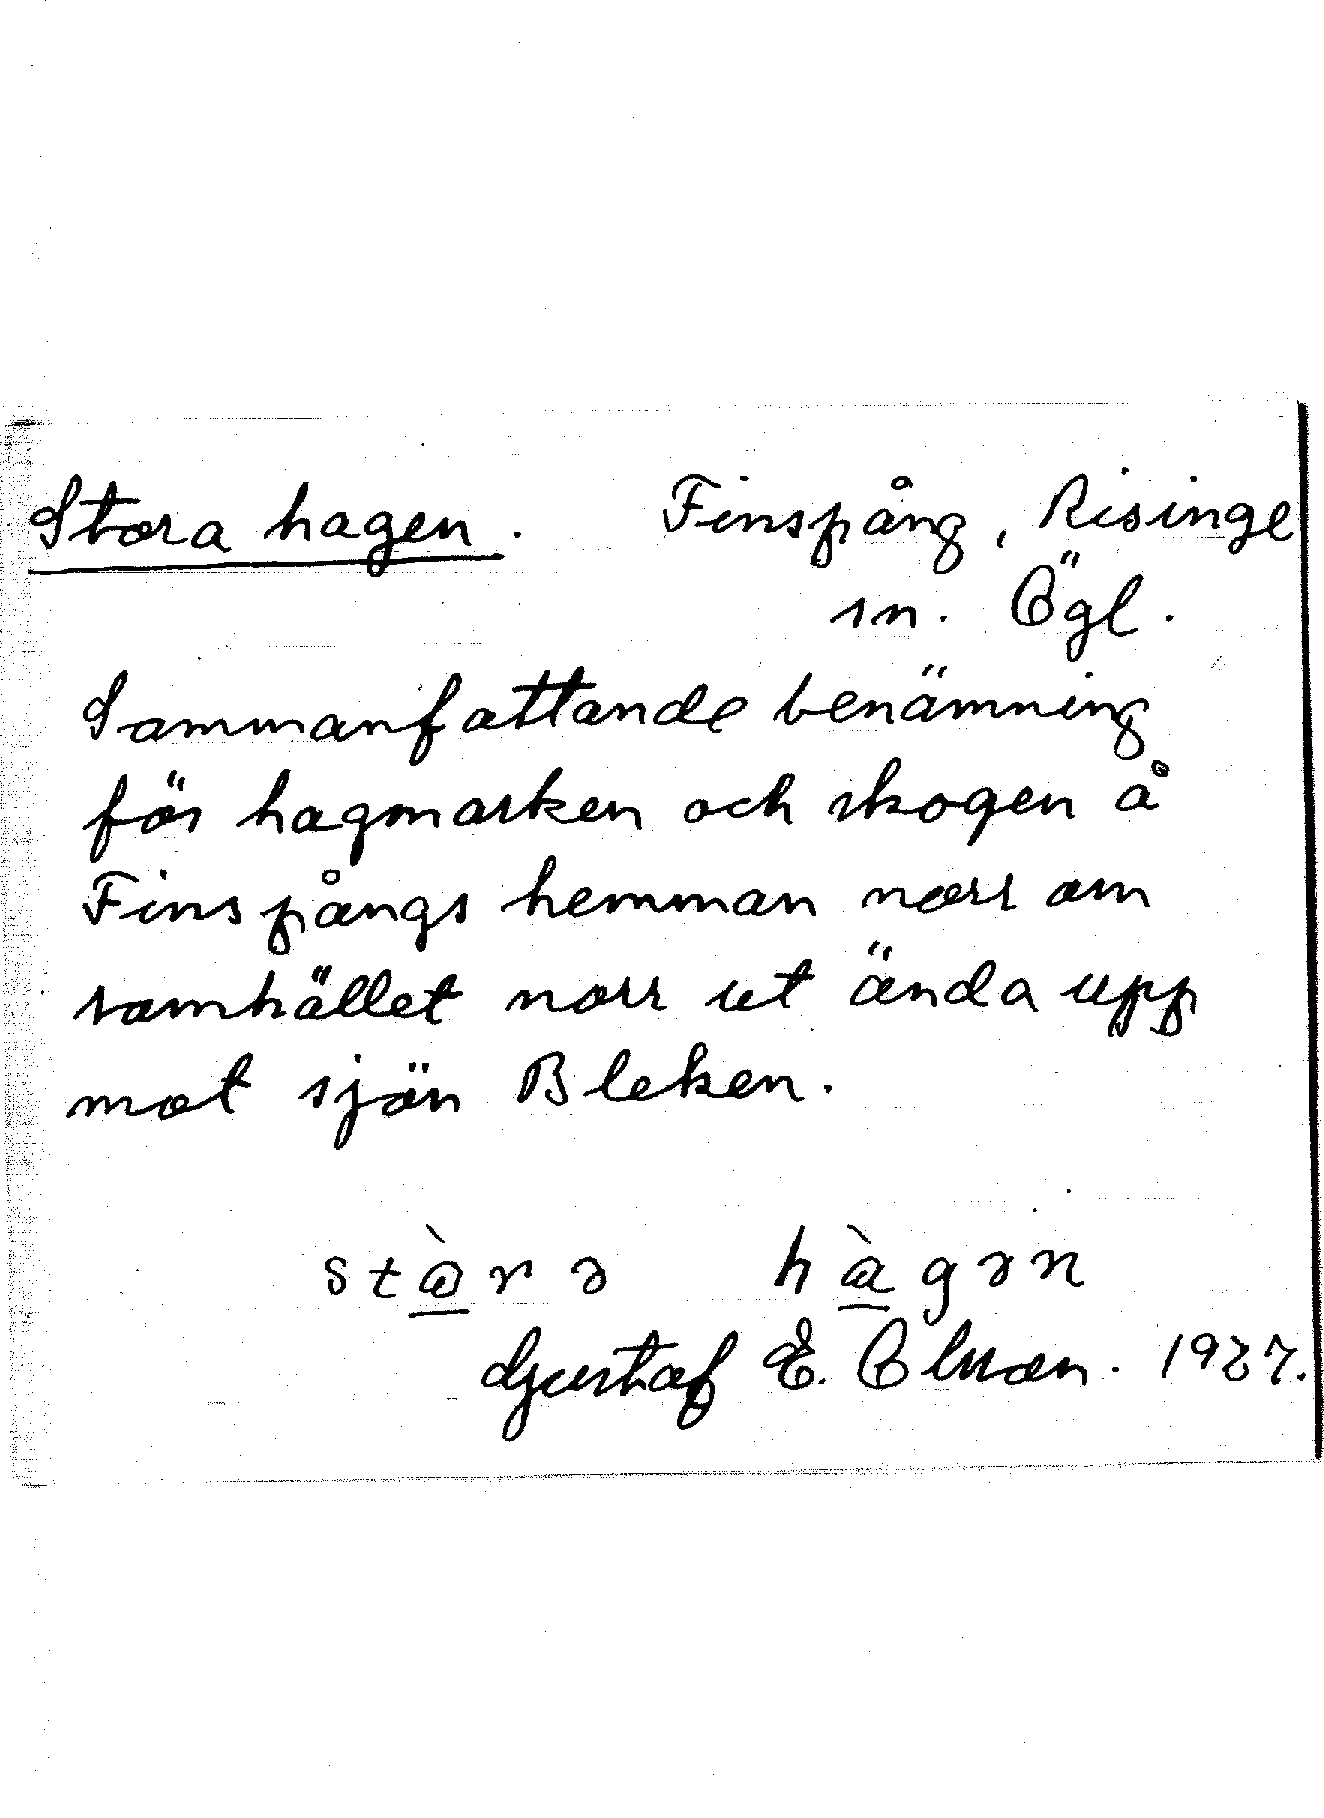 Stora hagen. Finspång, Risinge
sn. Ögl.
Sammanfattande benämning
för hagmarken och skogen å
Finspångs hemman norr om
samhället norr ut ända upp
mot sjön Bleken.
stòrə hàgən
Gustaf E. Olsson. 1927.